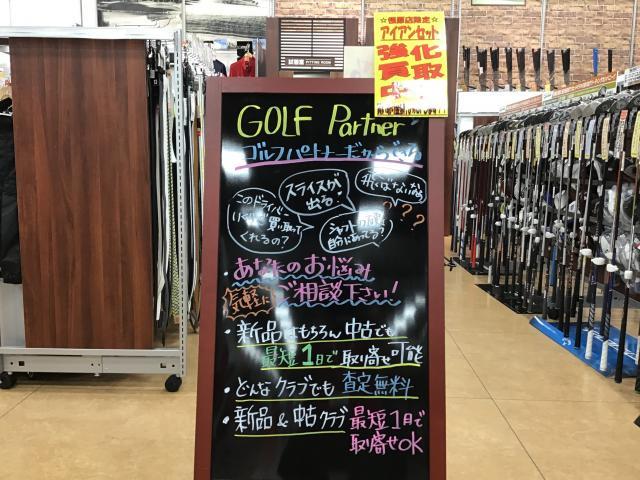 試着室 FITTING ROOM
限定☆
アイアンセット
強化
買取
GOLF Partner
ゴルフパートナーだからできる
スライスが
出る!
飛ばない
このドライバー
いくらで買い取って
くれるの?
シャフトの硬さ
自分にあってる?
???
・あなたのお悩み
気軽にご相談下さい!
・新品はもちろん中古でも
最短1日で取り寄せ可能
・どんなクラブでも査定無料
・新品&中古クラブ 最短1日で
取り寄せOK